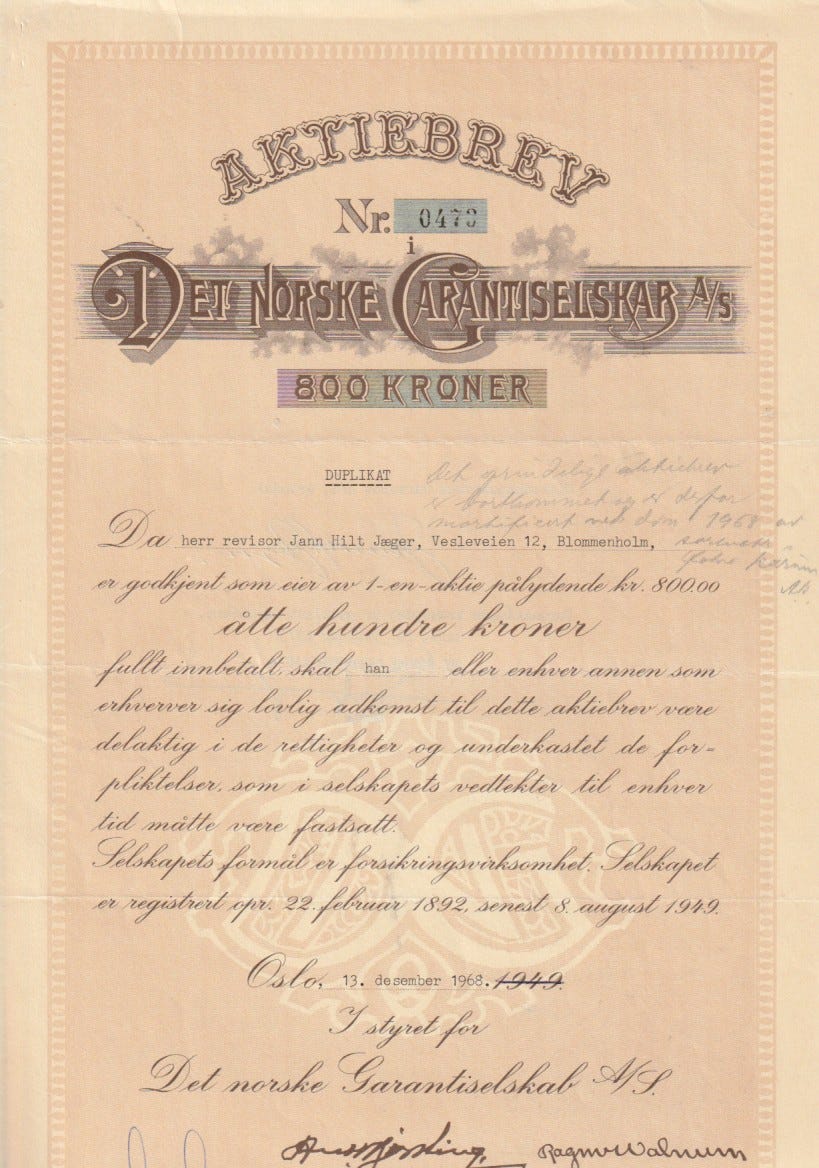 AKTIEBREV
Nr. 0473
i
DET NORSKE GARANTISELSKAB A/S
800 KRONER
DUPLIKAT
Det grundelige aktiebrev
er bortkommet og er derfor
mortifisert ved dom 1968 av
Da herr revisor Jann Hilt Jæger, Vesleveien 12, Blommenholm,
er godkjent som eier av 1-en-aktie pålydende kr. 800.00
åtte hundre kroner
fullt innbetalt, skal han eller enhver annen som
erhverver sig lovlig adkomst til dette aktiebrev være
delaktig i de rettigheter og underkastet de for-
pliktelser, som i selskapets vedtekter til enhver
tid måtte være fastsatt.
Selskapets formål er forsikringsvirksomhet. Selskapet
er registrert opr. 22. februar 1892, senest 8. august 1949.
Oslo, 13. desember 1968. 1949.
I styret for
Det norske Garantiselskab A/S.
Ragnv Walnum